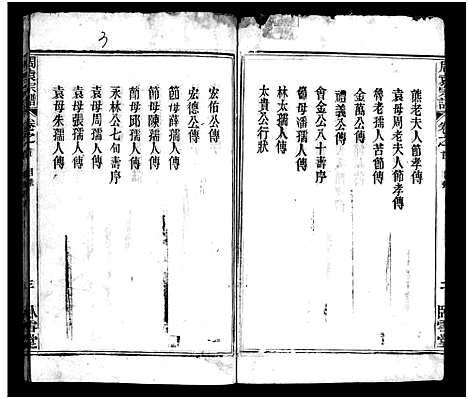 熊老夫人節孝傳
袁母周老夫人節孝傳
魯老孺人苦節傳
金萬公傳
禮義公傳
會金公八十壽序
節母潘孺人傳
林太孺人傳
太貴公行狀
宏佑公傳
宏德公傳
節母薛孺人傳
節母陳孺人傳
節母邱孺人傳
永林公七旬壽序
袁母周孺人傳
袁母張孺人傳
袁母朱孺人傳
周袁宗譜
卷之首
目錄
三
臥雪堂
3